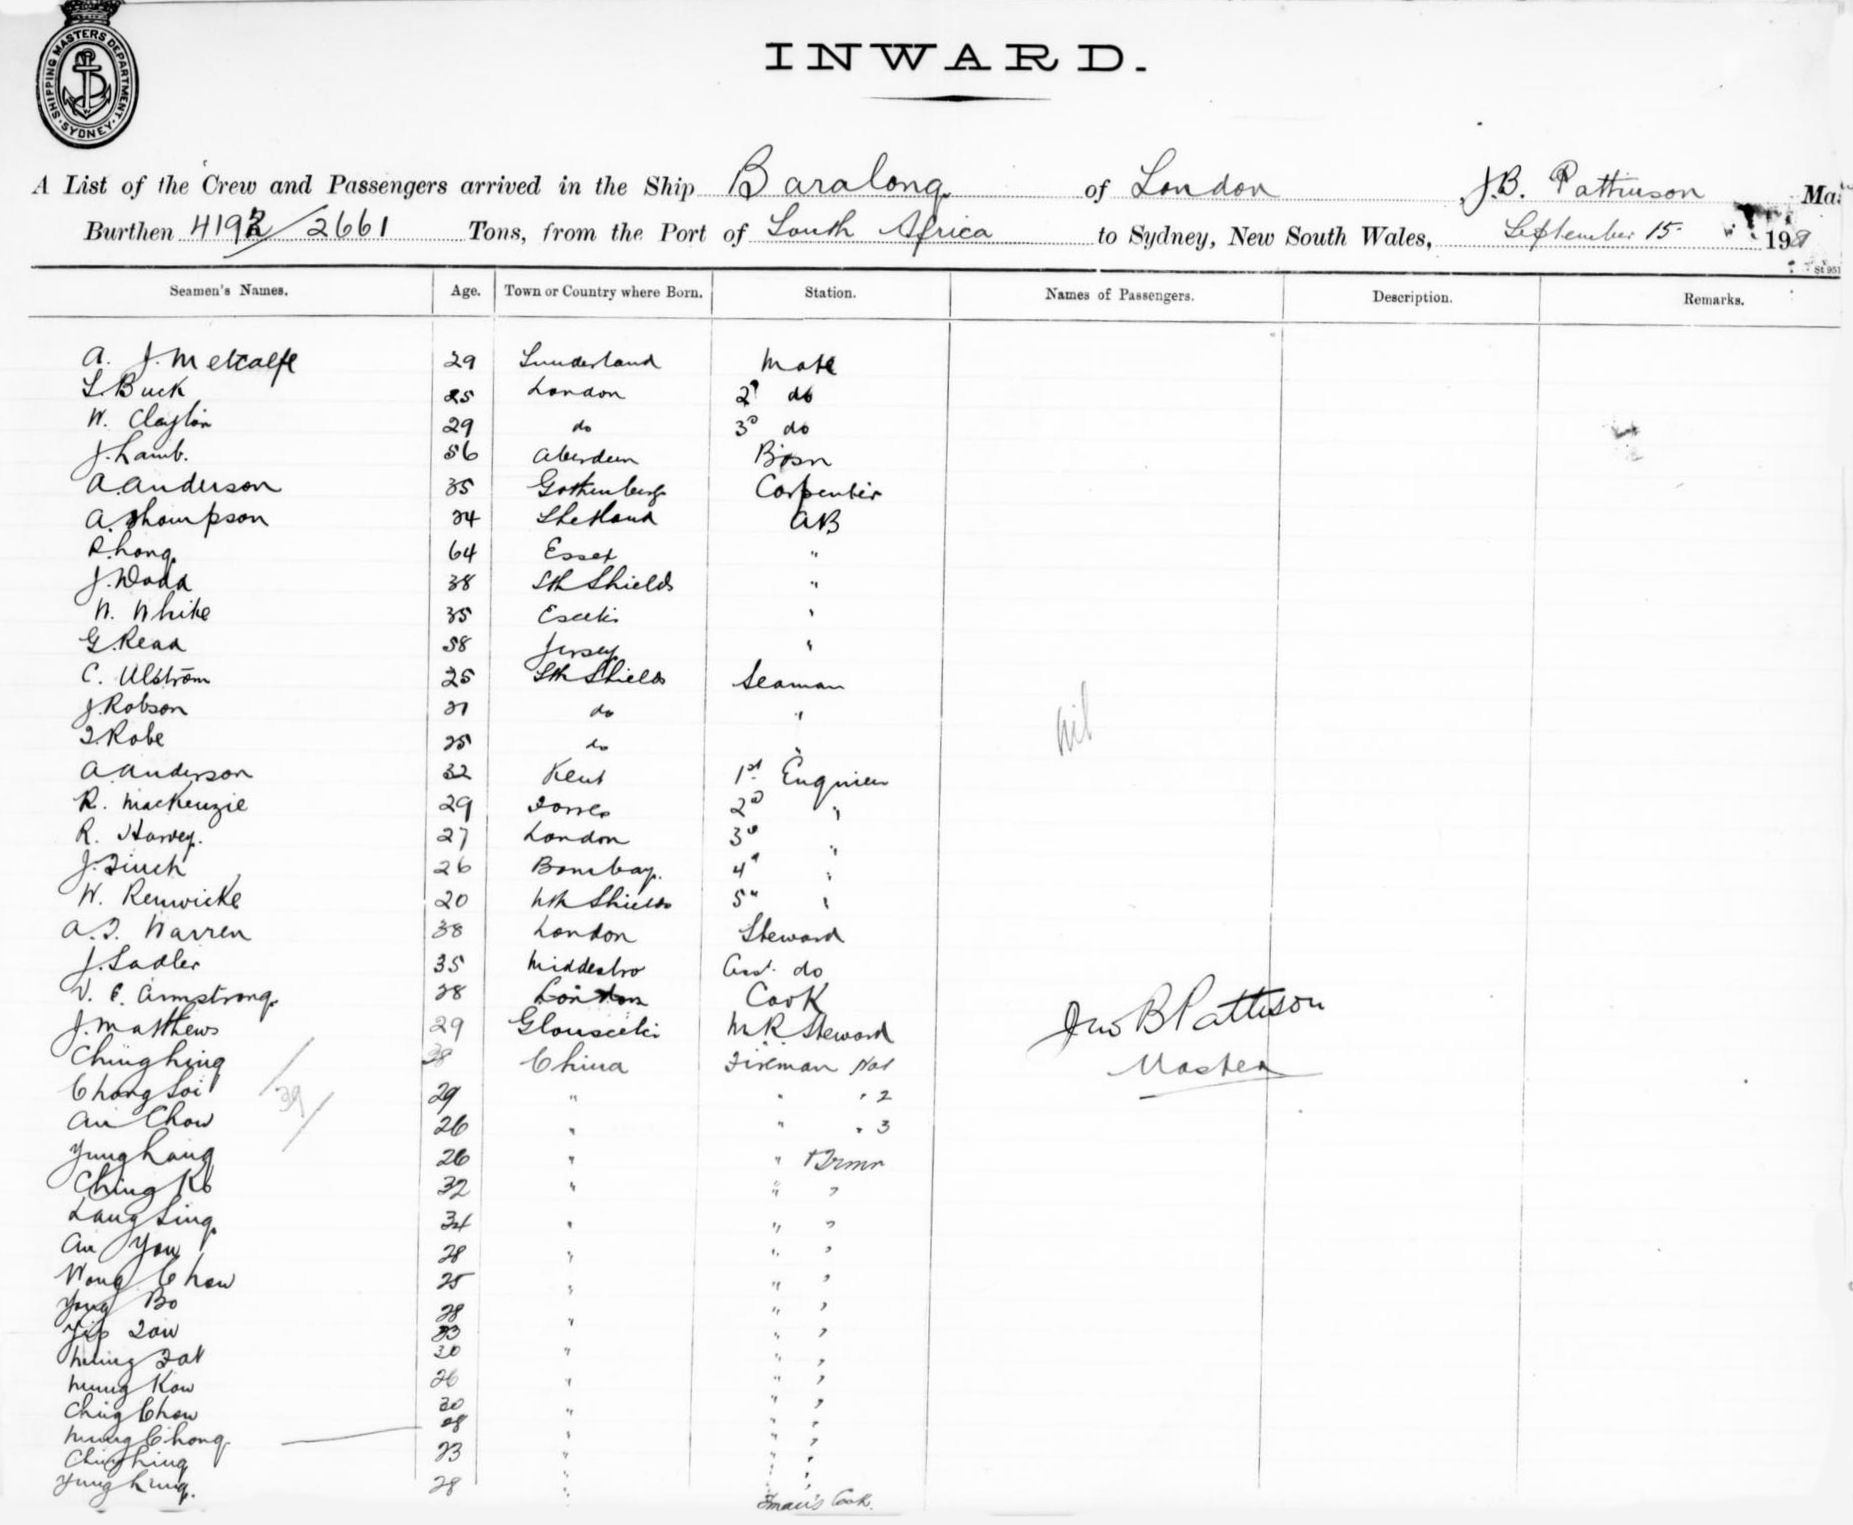 SHIPPING MASTERS DEPARTMENT. SYDNEY.
INWARD.
A List of the Crew and Passengers arrived in the Ship Baralong of London J.B. Pattinson
Burthen 4192/2661 Tons, from the Port of South Africa to Sydney, New South Wales, September 15 190
Seamen's Names. Age. Town or Country where Born. Station. Names of Passengers. Description. Remarks.
A. J. Metcalfe 29 Sunderland Mate
L. Buck 25 London 2d do
W. Clayton 29 do 3d do
J. Lamb. 56 Aberdeen Bosn
A. Anderson 35 Gothenberg Carpenter
A. Thompson 24 Shetland AB
R. Long 64 Essex "
J. Dodd 38 Sth Shields "
W. White 35 "
G. Read 58 Jersey "
C. Ulstrom 25 Sth Shields Seaman
J. Robson 21 do "
T. Robe 25 do
nil
A. Anderson 32 Kent 1st Engineer
R. MacKenzie 29 Forres 2d "
R. Harvey. 27 London 3d "
J. Finch 26 Bombay. 4d "
W. Renwicke 20 Nth Shields 5" "
A. F. Warren 38 London Steward
J. Sadler 35 Middesbro Asst. do
V. E. Armstrong 28 London Cook
J. Matthews 29 M R Steward
Jno B Pattison
Master
Ching Hing 38 China Fireman No1
Chong Soi 29 " " " 2
39
Au Chow 26 " " " 3
Yung Lang 26 " " Trmr
Ching Ko 32 " " "
Lang Sing 34 " " "
Au You 28 " " "
Wong Chow 25 " " "
Yong Bo 28 " " "
Yip Tow 23 " "
30 " " "
Kow 26 " " "
Ching Chow 30 " " "
Chong 28 " " "
Ching Hing 23 " " "
Yung 28 "
Fman's Cook.